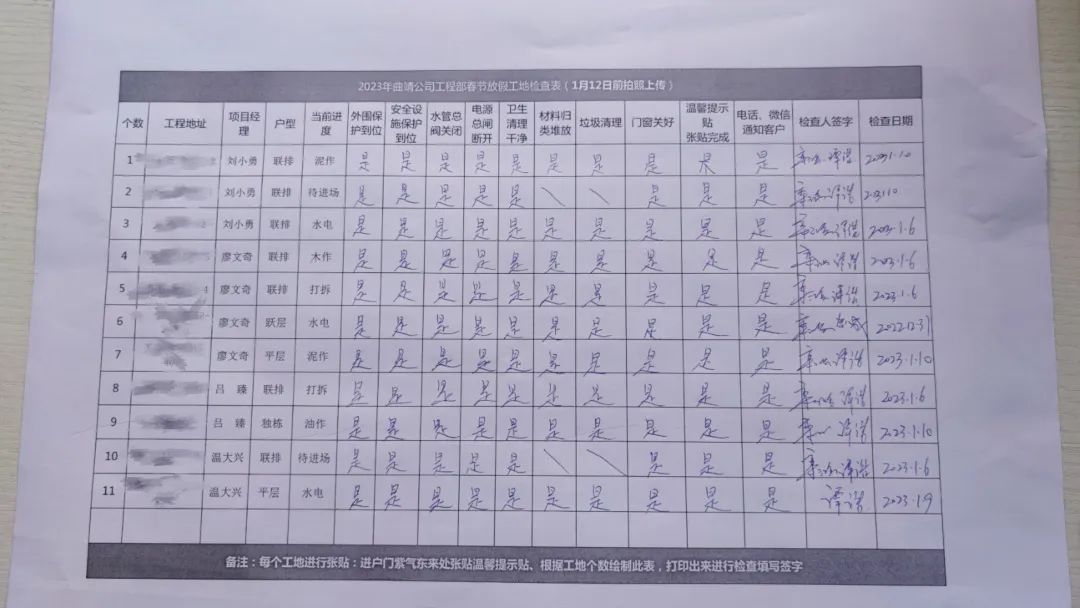 2023年曲靖公司工程部春节放假工地检查表（1月12日前拍照上传）
个数 工程地址 项目经理 户型 当前进度 外围保护到位 安全设施保护到位 水管总阀关闭 电源总闸断开 卫生清理干净 材料归类堆放 垃圾清理 门窗关好 温馨提示贴张贴完成 电话、微信通知客户 检查人签字 检查日期
1 刘小勇 联排 泥作 是 是 是 是 是 是 是 是 是 是 谭浩 2023.1.10
2 刘小勇 联排 待进场 是 是 是 是 是 \ \ 是 是 是 谭浩
3 刘小勇 联排 水电 是 是 是 是 是 是 是 是 是 是 谭浩 2023.1.6
4 廖文奇 联排 木作 是 是 是 是 是 是 是 是 是 是 谭浩 2023.1.6
5 廖文奇 联排 打拆 是 是 是 是 是 是 是 是 是 是 谭浩 2023.1.6
6 廖文奇 跃层 水电 是 是 是 是 是 是 是 是 是 是 2022.12.31
7 廖文奇 平层 泥作 是 是 是 是 是 是 是 是 是 是 谭浩 2023.1.10
8 吕 臻 联排 打拆 是 是 是 是 是 是 是 是 是 是 谭浩 2023.1.6
9 吕 臻 独栋 油作 是 是 是 是 是 是 是 是 是 是 谭浩 2023.1.10
10 温大兴 联排 待进场 是 是 是 是 是 \ \ 是 是 是 谭浩 2023.1.6
11 温大兴 平层 水电 是 是 是 是 是 是 是 是 是 是 谭浩 2023.1.9
备注：每个工地进行张贴：进户门紫气东来处张贴温馨提示贴、根据工地个数绘制此表，打印出来进行检查填写签字